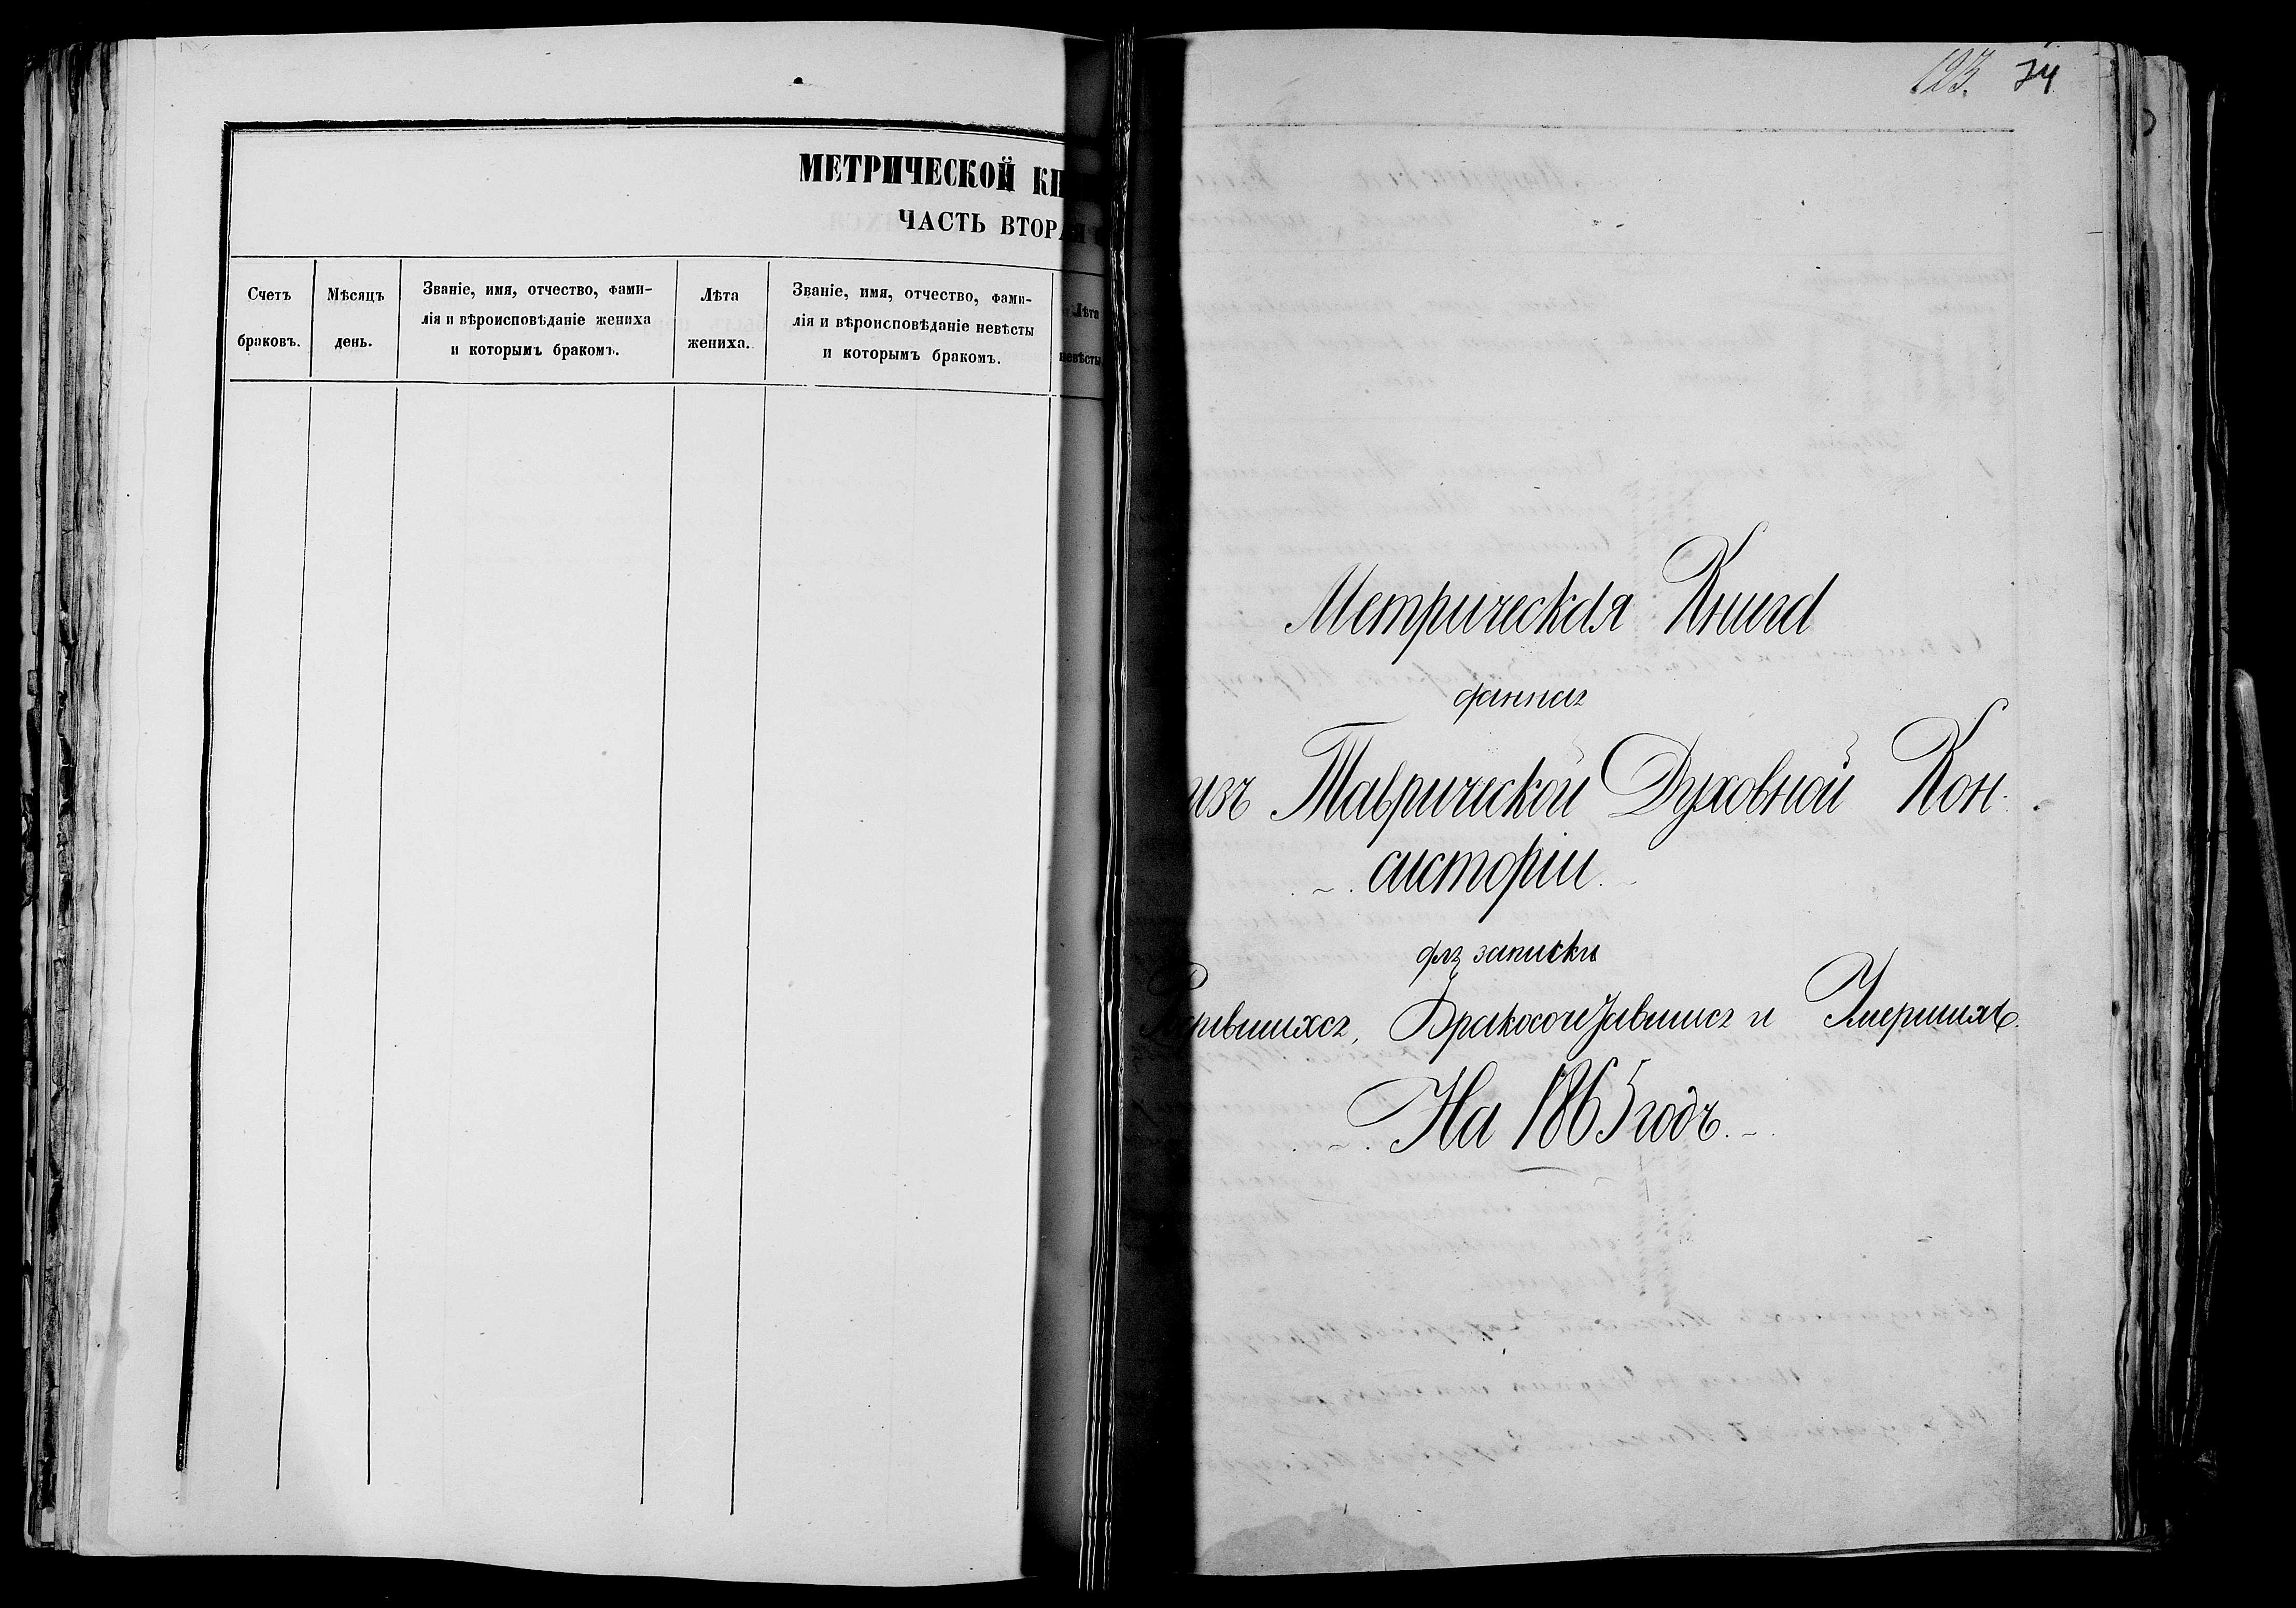 МЕТРИЧЕСКОЙ КН
ЧАСТЬ ВТОРАЯ
Счетъ
браковъ.
Мѣсяцъ
день.
Званіе, имя, отчество, фами-
лія и вѣроисповѣданіе жениха
и которымъ бракомъ.
Лѣта
жениха.
Званіе, имя, отчество, фами-
лія и вѣроисповѣданіе невѣсты
и которымъ бракомъ.
Лѣта
невѣсты
123. 74
Метрическая Книга
данная
изъ Таврической Духовной Кон-
систоріи
для записки
Родившихся, Бракосочетавшися и Умершихъ.
На 1865 годъ.